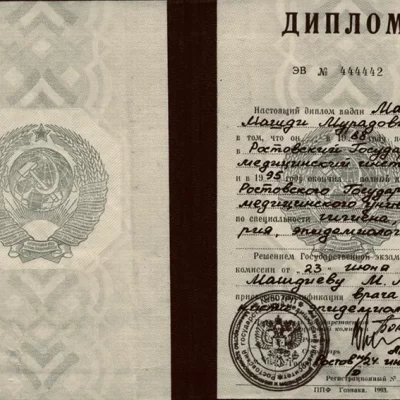 ДИПЛОМ
ЭВ № 444442
Настоящий диплом выдан Ма
Магиди Мурадов
в том, что он в 1988 году по
в Ростовский Государ
медицинский инст
и в 1995 году окончил полный
Ростовского Государ
медицинского унив
по специальности гигиена
рия, эпидемиолог
Решением Государственной экзам
комиссии от " 23 " июня
Машдиеву М. М
квалификация врача
эпидемио
Ростов " 24 " ию
Регистрационный №
ППФ Гознака. 1993.